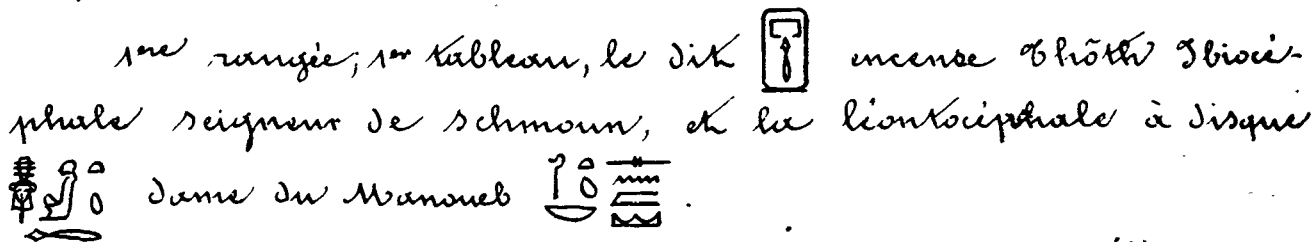 1ere rangée; 1er tableau, le dit 𓉐𓂋𓉻 encense Thôth Ibiocé-
phale seigneur de Schmoun, et la léontocéphale à disque
dame du Manoueb .